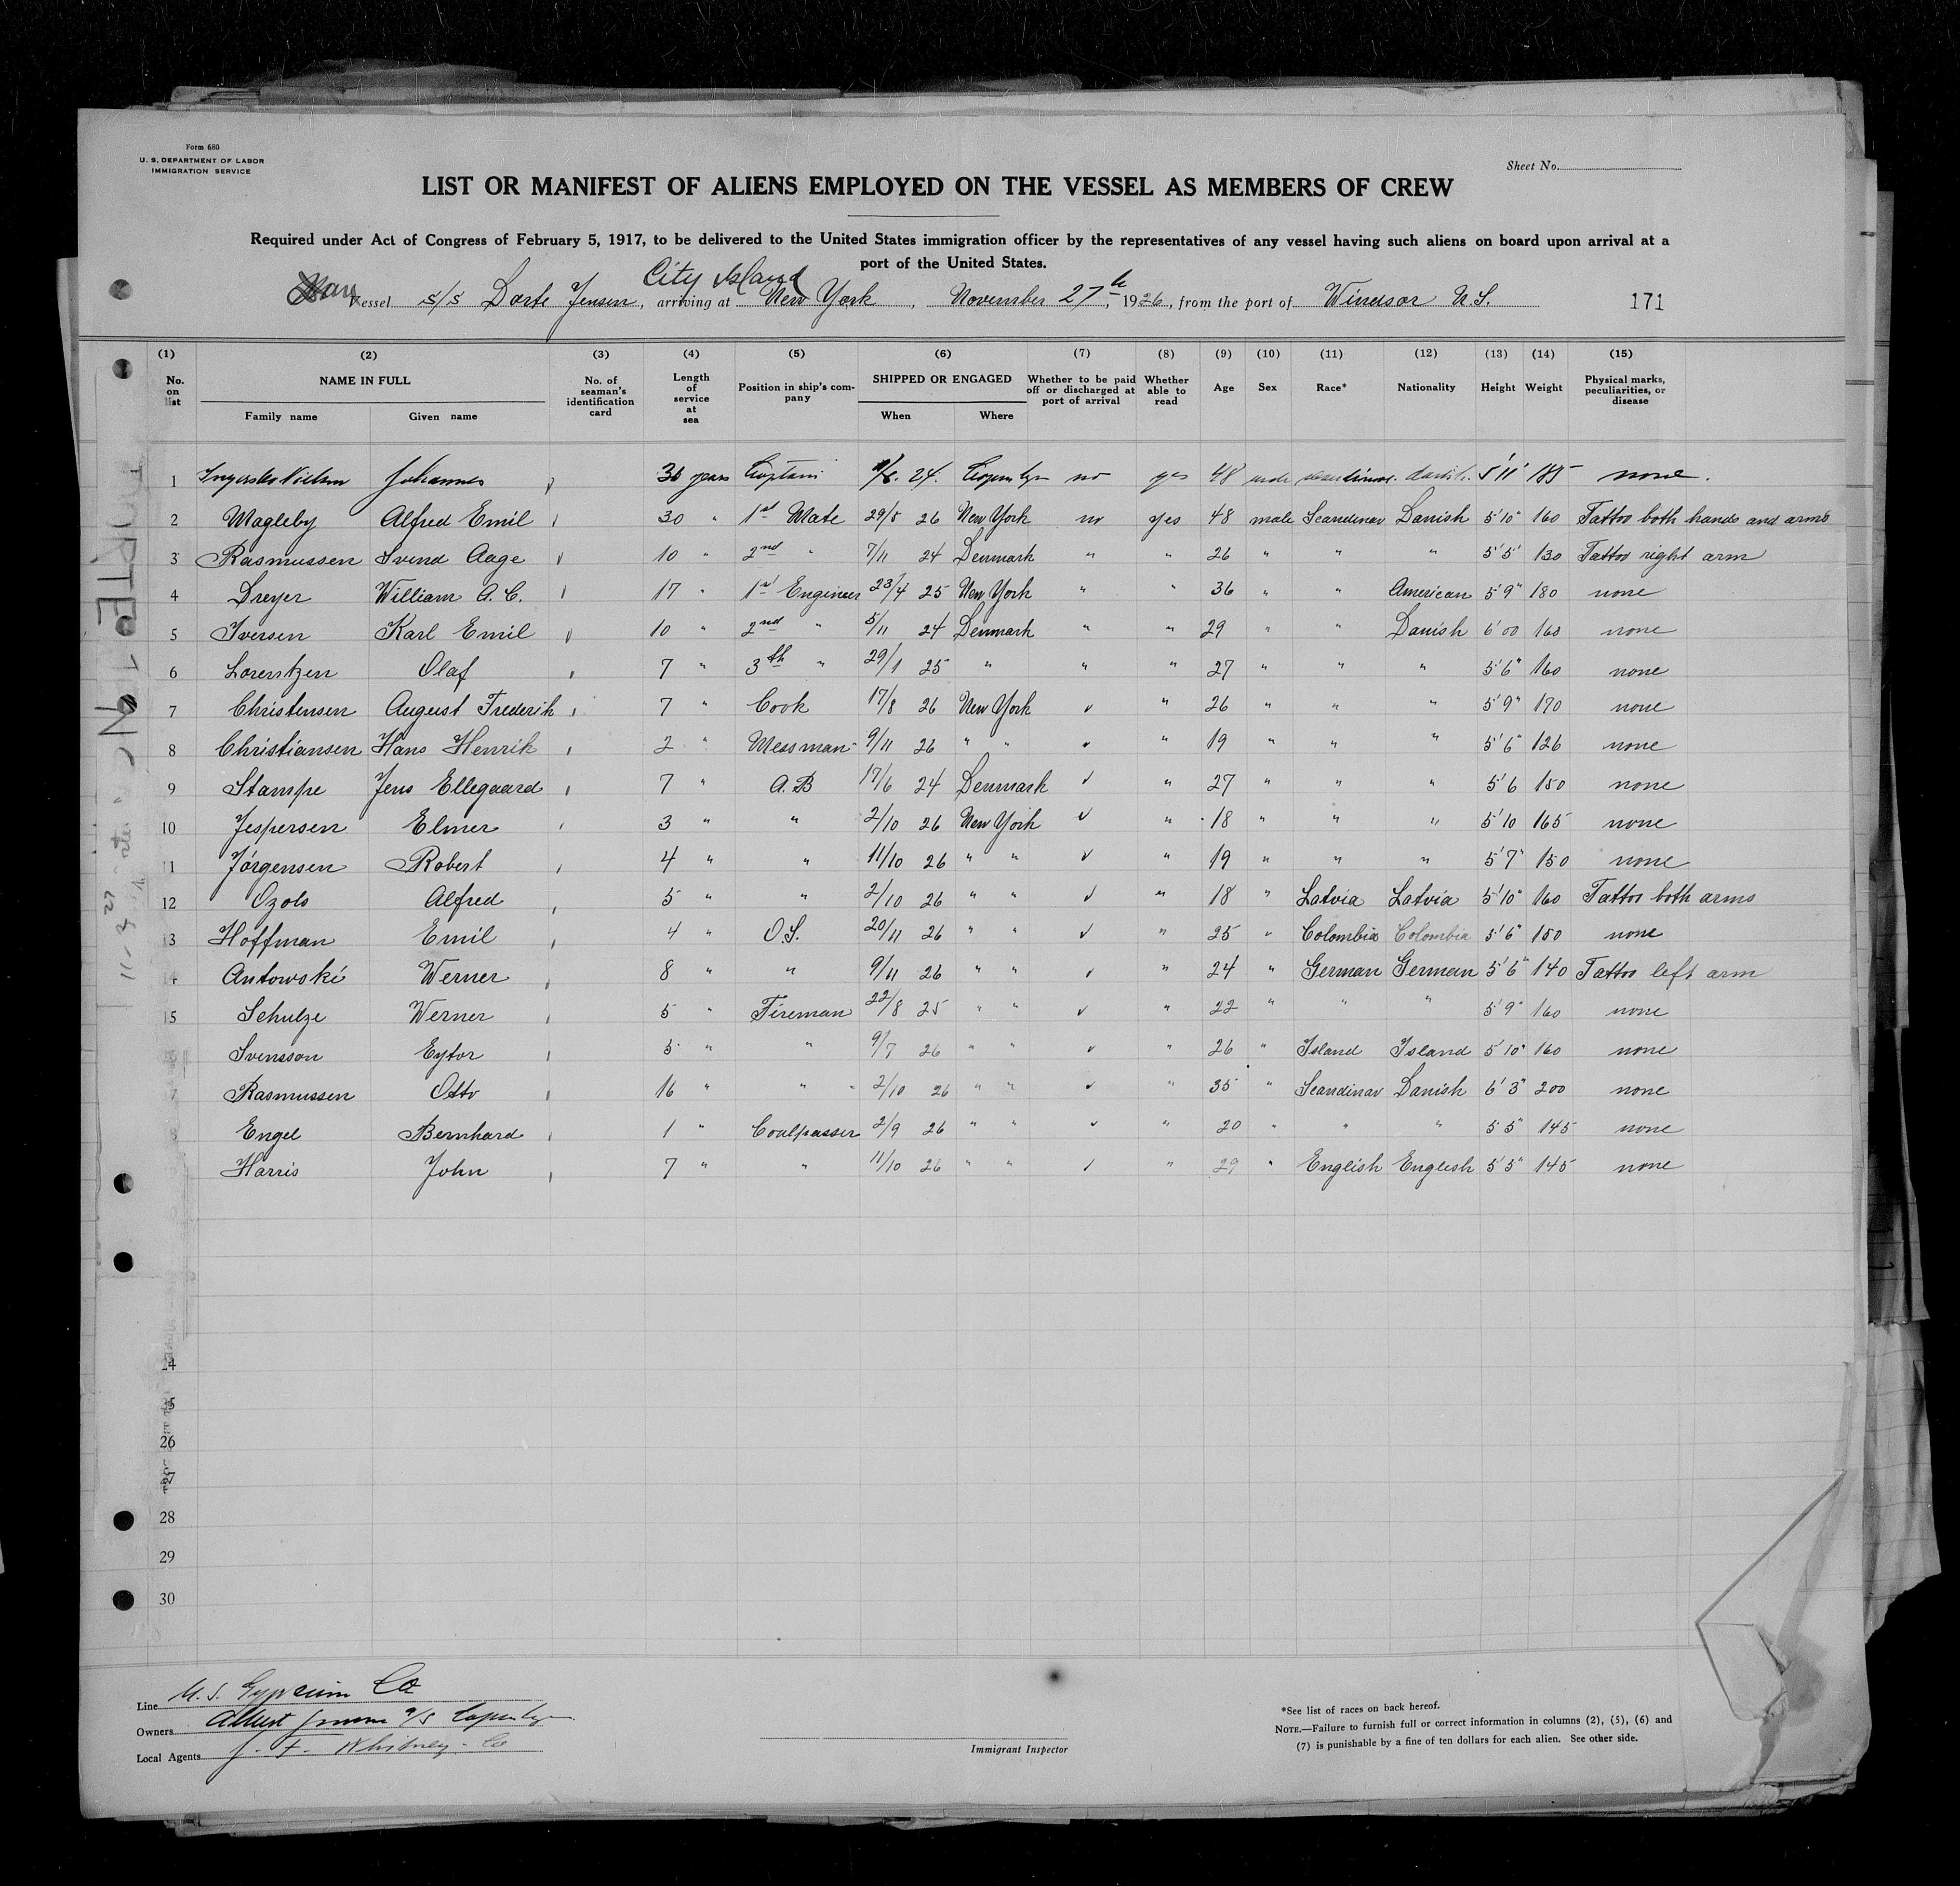 Form 680
U. S. DEPARTMENT OF LABOR
IMMIGRATION SERVICE
Sheet No.
LIST OR MANIFEST OF ALIENS EMPLOYED ON THE VESSEL AS MEMBERS OF CREW
Required under Act of Congress of February 5, 1917, to be delivered to the United States immigration officer by the representatives of any vessel having such aliens on board upon arrival at a
port of the United States.
City Island
Vessel S/S Dorte Jensen, arriving at New York, November 27th, 1926, from the port of Windsor N.S. 171
(1) (2) (3) (4) (5) (6) (7) (8) (9) (10) (11) (12) (13) (14) (15)
No. on list NAME IN FULL Family name Given name No. of seaman's identification card Length of service at sea Position in ship's company SHIPPED OR ENGAGED When Where Whether to be paid off or discharged at port of arrival Whether able to read Age Sex Race* Nationality Height Weight Physical marks, peculiarities, or disease
1 Johannes 30 years Captain 24. no yes 48 male danish. 5'11" 185 none.
2 Magleby Alfred Emil 30 " 1st Mate 29/5 26 New York no yes 48 male Scandinav Danish 5'10" 160 Tattoo both hands and arms
3 Rasmussen Svend Aage 10 " 2nd " 7/11 24 Denmark " " 26 " " " 5'5" 130 Tattoo right arm
4 Dreyer William A. C. 17 " 1st Engineer 23/4 25 New York " " 36 " " American 5'9" 180 none
5 Iversen Karl Emil 10 " 2nd " 5/11 24 Denmark " " 29 " " Danish 6'00 160 none
6 Lorentzen Olaf 7 " 3th " 29/1 25 " " " 27 " " " 5'6" 160 none
7 Christensen August Frederik 7 " Cook 17/8 26 New York ✓ " 26 " " " 5'9" 170 none
8 Christiansen Hans Henrik 2 " Messman 9/11 26 " " ✓ " 19 " " " 5'6" 126 none
9 Stampe Jens Ellegaard 7 " A.B 17/6 24 Denmark ✓ " 27 " " " 5'6 150 none
10 Jespersen Elmer 3 " " 2/10 26 New York ✓ " 18 " " " 5'10 165 none
11 Jörgensen Robert 4 " " 11/10 26 " " ✓ " 19 " " " 5'7" 150 none
12 Ozols Alfred 5 " " 2/10 26 " " ✓ " 18 " Latvia Latvia 5'10" 160 Tattoo both arms
13 Hoffman Emil 4 " O.S. 20/11 26 " " ✓ " 25 " Colombia Colombia 5'6" 150 none
14 Antowski Werner 8 " " 9/11 26 " " ✓ " 24 " German German 5'6" 140 Tattoo left arm
15 Schulze Werner 5 " Fireman 22/8 25 " " ✓ " 22 " " " 5'9" 160 none
Svensson Eytor 5 " " 9/7 26 " " ✓ " 26 " Island Island 5'10" 160 none
7 Rasmussen Otto 16 " " 2/10 26 " " ✓ " 35 " Scandinav Danish 6'3" 200 none
8 Engel Bernhard 1 " Coalpasser 2/9 26 " " ✓ " 20 " " " 5'5" 145 none
Harris John 7 " " 11/10 26 " " ✓ " 29 " English English 5'5" 145 none
24
25
26
27
28
29
30
Line U.S. Gypsum Co
Owners Albert Jensen a/s
Local Agents J. F. Whitney Co
Immigrant Inspector
*See list of races on back hereof.
NOTE.—Failure to furnish full or correct information in columns (2), (5), (6) and
(7) is punishable by a fine of ten dollars for each alien. See other side.